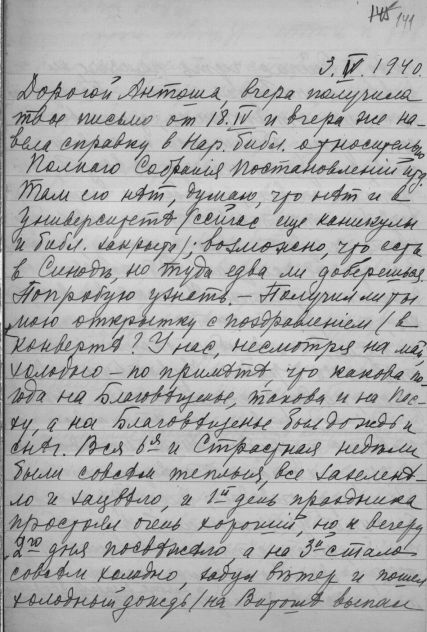 145 141
3.V.1940.
Дорогой Антоша, вчера получила
твое письмо от 18.IV и вчера же на-
вела справку в Нар. библ. относительно
Полнаго Собранія постановленій и пр.
Там его нѣт, думаю, что нѣт и в
университетѣ (сейчас еще каникулы
и библ. закрыта); возможно, что есть
в Синодѣ, но туда едва ли доберешься.
Попробую узнать. – Получил ли ты
мою открытку с поздравленіем (в
конвертѣ? У нас, несмотря на май,
холодно – по примѣтѣ, что какова по-
года на Благовѣщенье, такова и на Пас-
ху, а на Благовѣщенье был дождь и
снѣг. Вся 6ая и Страстная недѣли
были совсѣм теплыя, все зазеленѣ-
ло и зацвѣло, и 1й день праздника
простоял очень хорошій, но к вечеру
2го дня посвѣжѣло а на 3й стало
совсѣм холодно, задул вѣтер и пошел
холодный дождь (на Витошѣ выпал